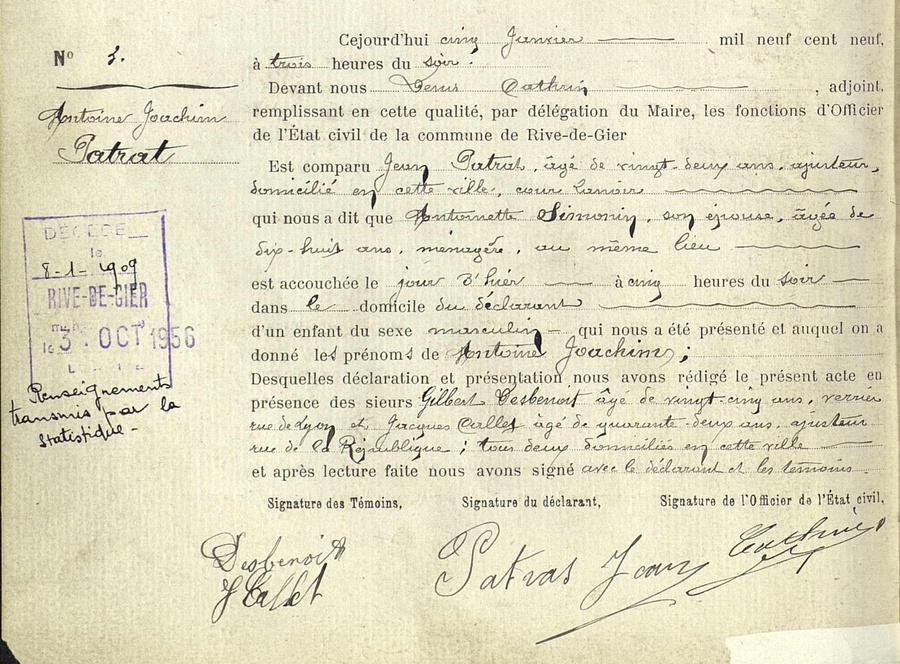 Nº 3.
Antoine Joachim
Patrat
DÉCÉDÉ
le
8-1-1909
RIVE-DE-GIER
le 3 OCT 1956
Renseignements
transmis par la
statistique -
Cejourd'hui cinq Janvier mil neuf cent neuf,
à trois heures du soir.
Devant nous Denis Cathrin, adjoint,
remplissant en cette qualité, par délégation du Maire, les fonctions d'Officier
de l'État civil de la commune de Rive-de-Gier
Est comparu Jean Patrat, âgé de vingt-deux ans, ajusteur,
domicilié en cette ville, cour
qui nous a dit que Antoinette Simonin, son épouse, âgée de
dix-huit ans, ménagère, au même lieu
est accouchée le jour d'hier à cinq heures du soir
dans le domicile du déclarant
d'un enfant du sexe masculin - qui nous a été présenté et auquel on a
donné les prénoms de Antoine Joachim ;
Desquelles déclaration et présentation nous avons rédigé le présent acte en
présence des sieurs Gilbert Desbenoit âgé de vingt-cinq ans, verrier
rue de Lyon et Jacques Callet âgé de quarante-deux ans, ajusteur
rue de la République ; tous deux domiciliés en cette ville
et après lecture faite nous avons signé avec le déclarant et les témoins.
Signature des Témoins, Signature du déclarant, Signature de l'Officier de l'État civil,
Desbenoit
J Callet
Patras Jean